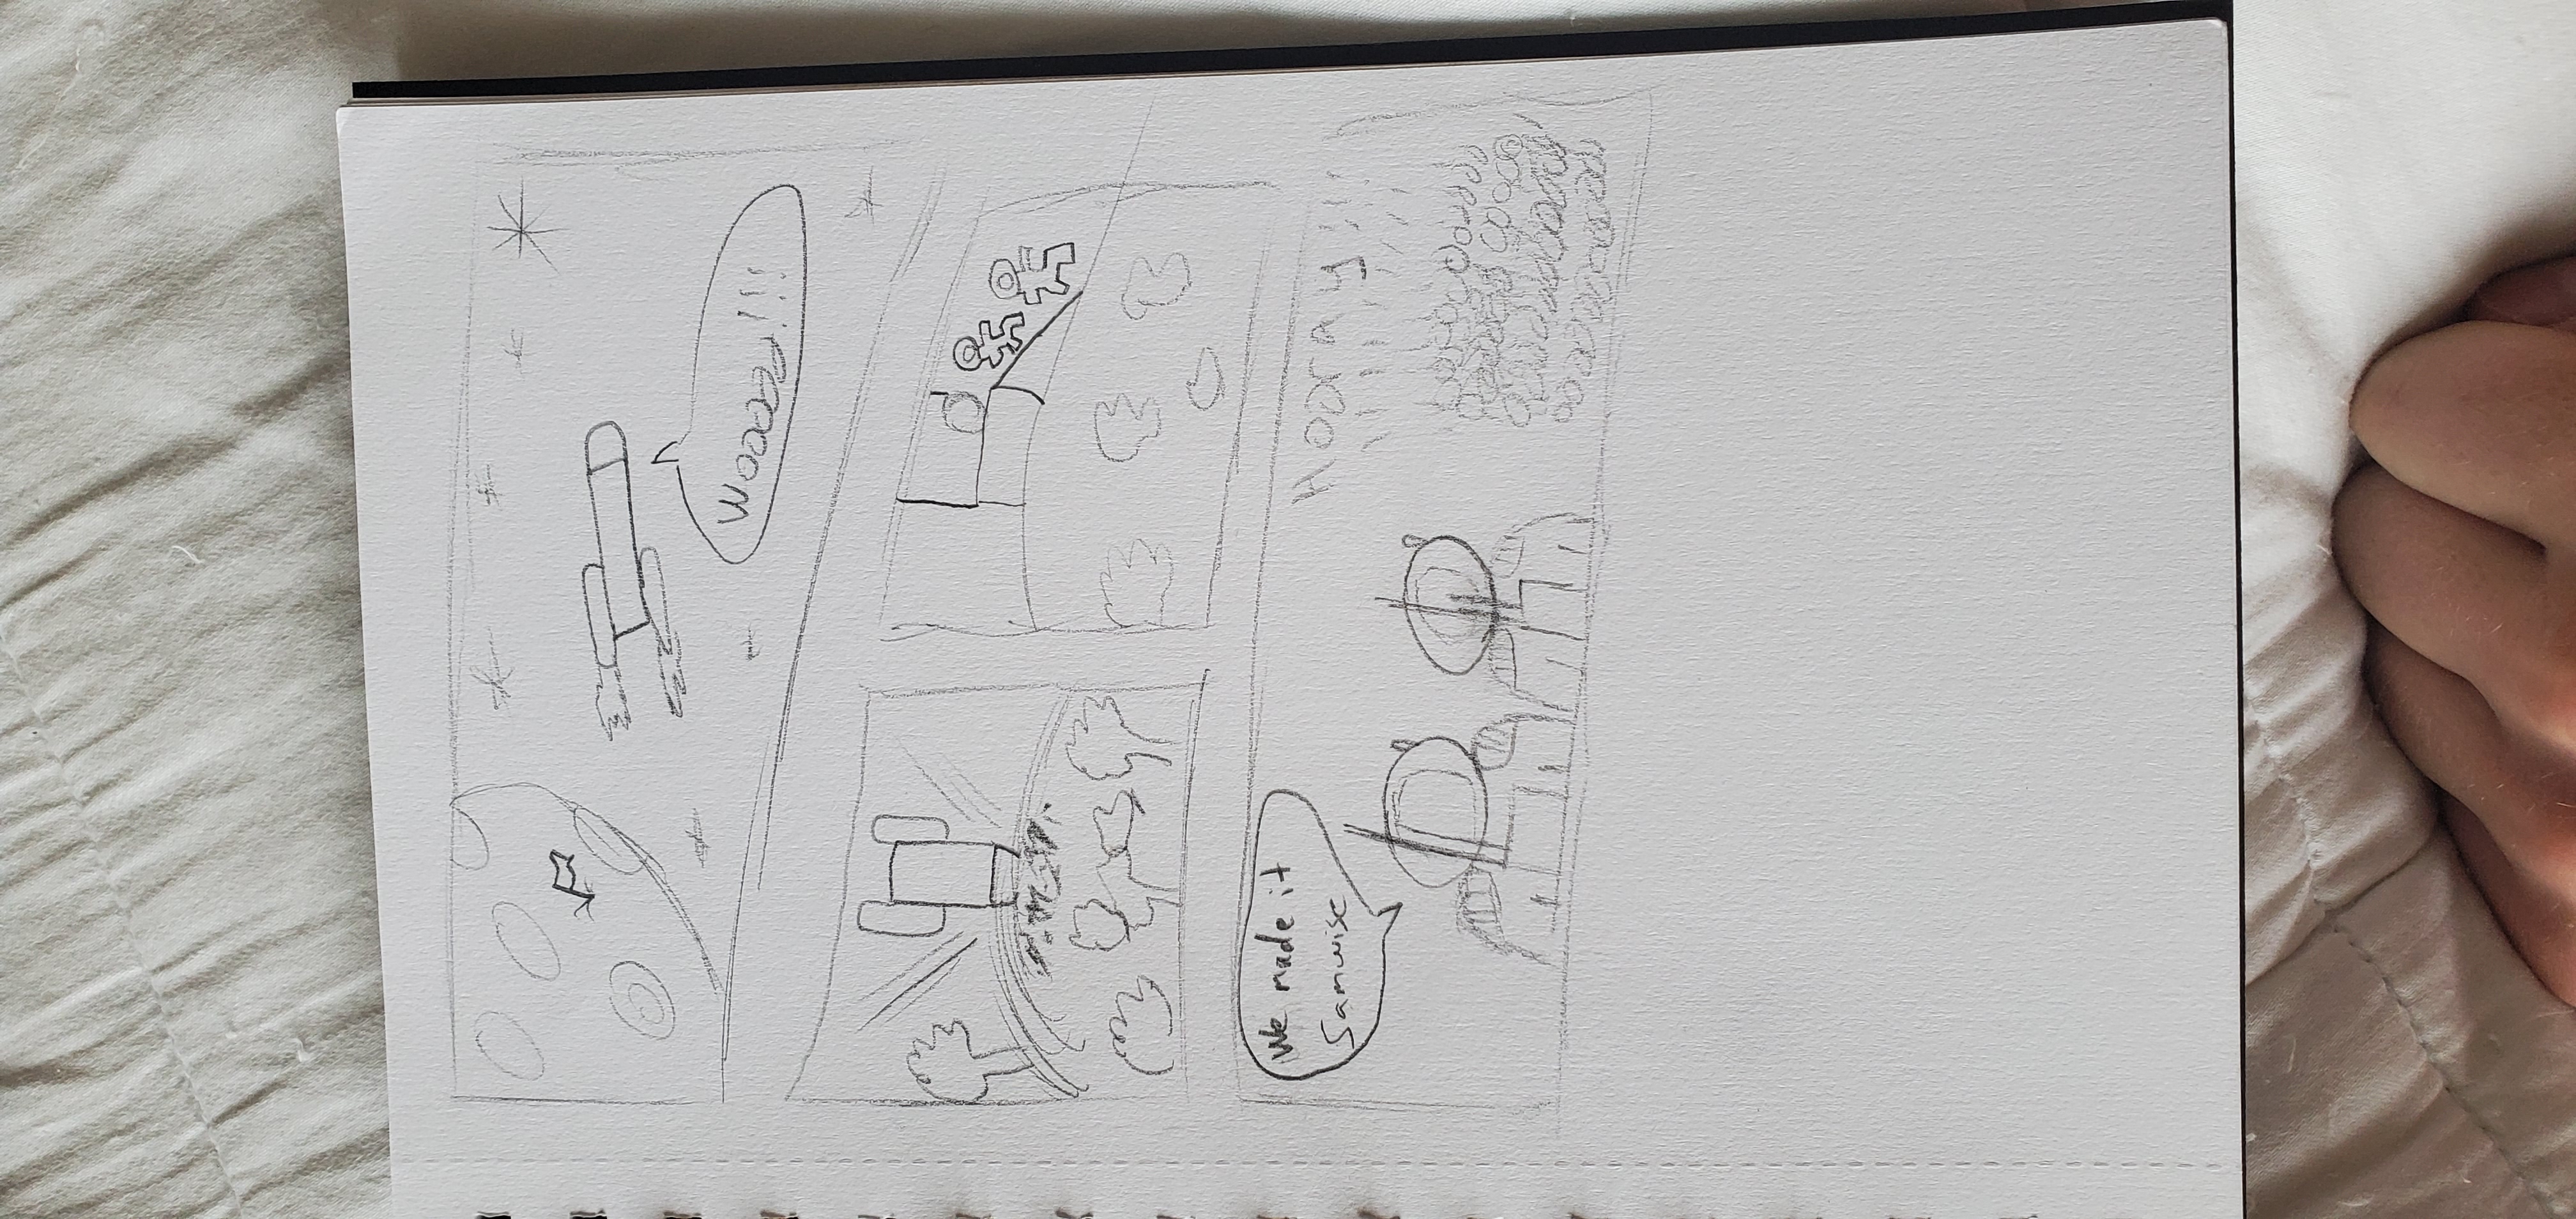 Wooooo!!!
We made it
Samwise
Hooray!!!